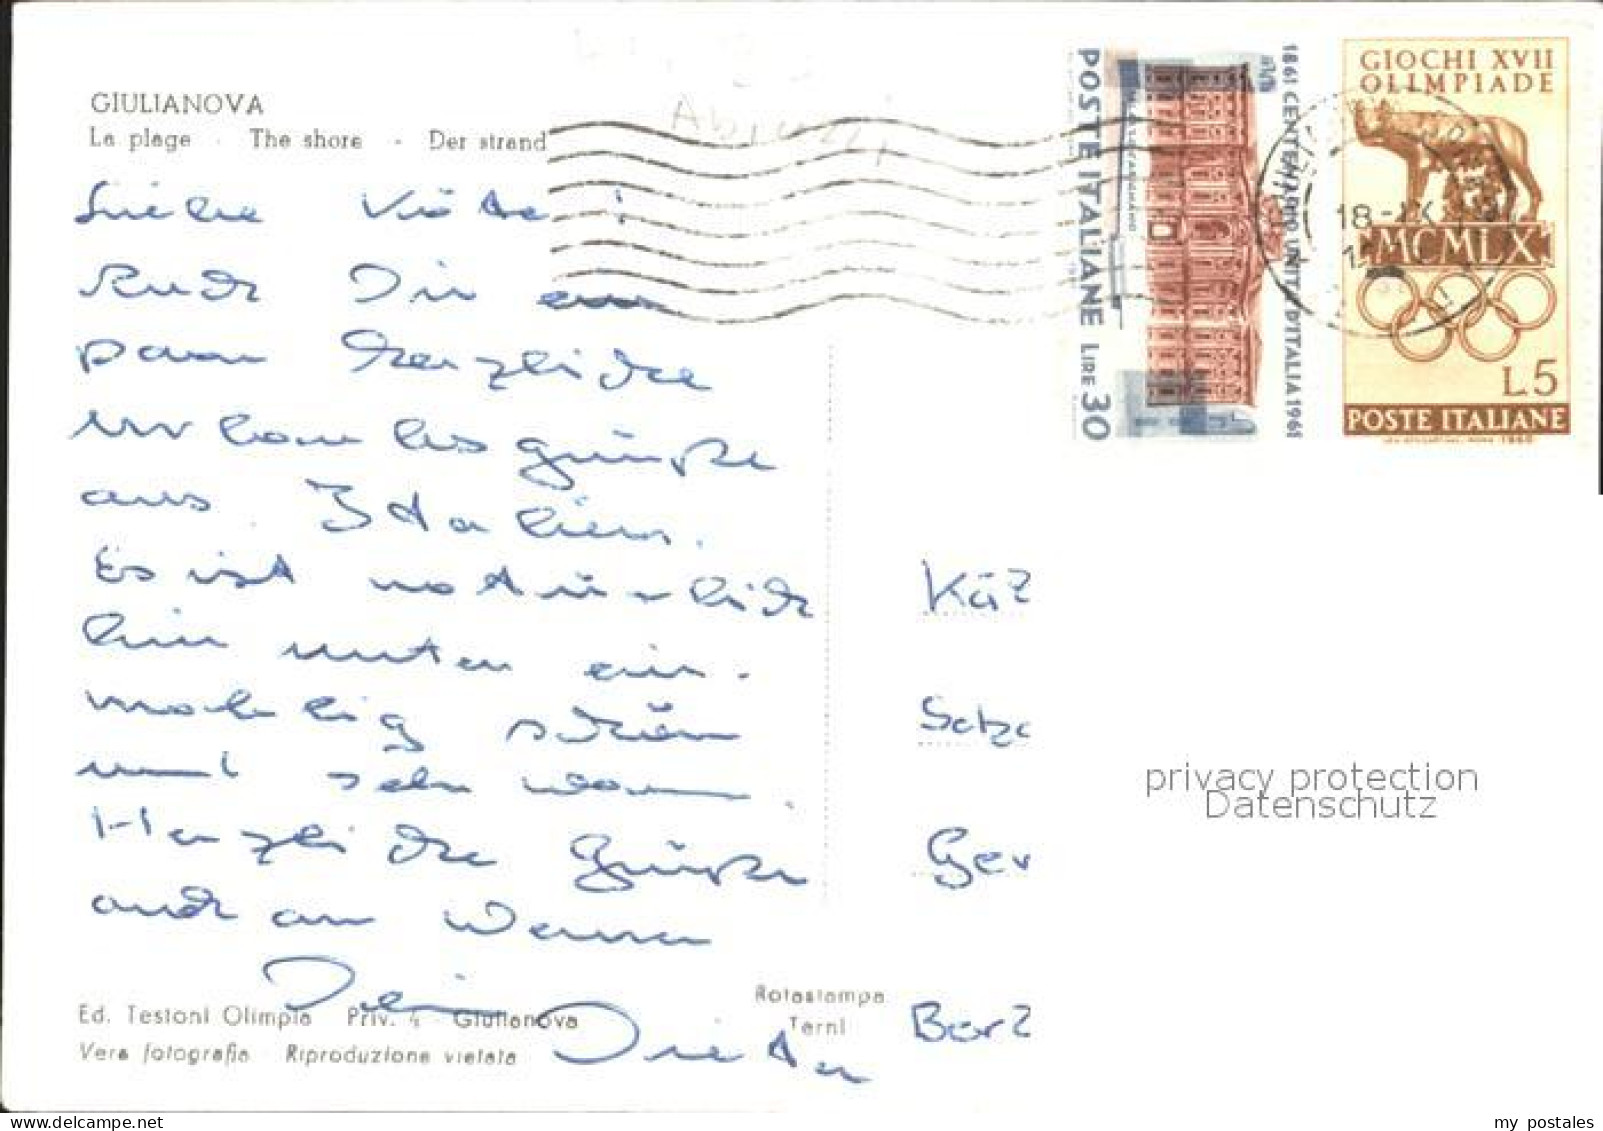 GIULIANOVA
La plage - The shore - Der strand
Abruzzi
Liebe Käte!
Auch Dir ein
paar herzliche
Urlaubsgrüße
aus Italien.
Es ist natürlich
hier unten ein-
malig schön
und sehr warm.
Herzliche Grüße
auch an Werner
Dein
Dieter
Ed. Testoni Olimpia Priv. 4 - Giulianova
Vera fotografia - Riproduzione vietata
Rotastampa
Terni
POSTE ITALIANE LIRE 30
1861 CENTENARIO UNITÀ D'ITALIA 1961
GIOCHI XVII
OLIMPIADE
18-IX
MCMLX
L5
POSTE ITALIANE
1960
Kät
Satz
Ger
Bor
privacy protection
Datenschutz
my postales